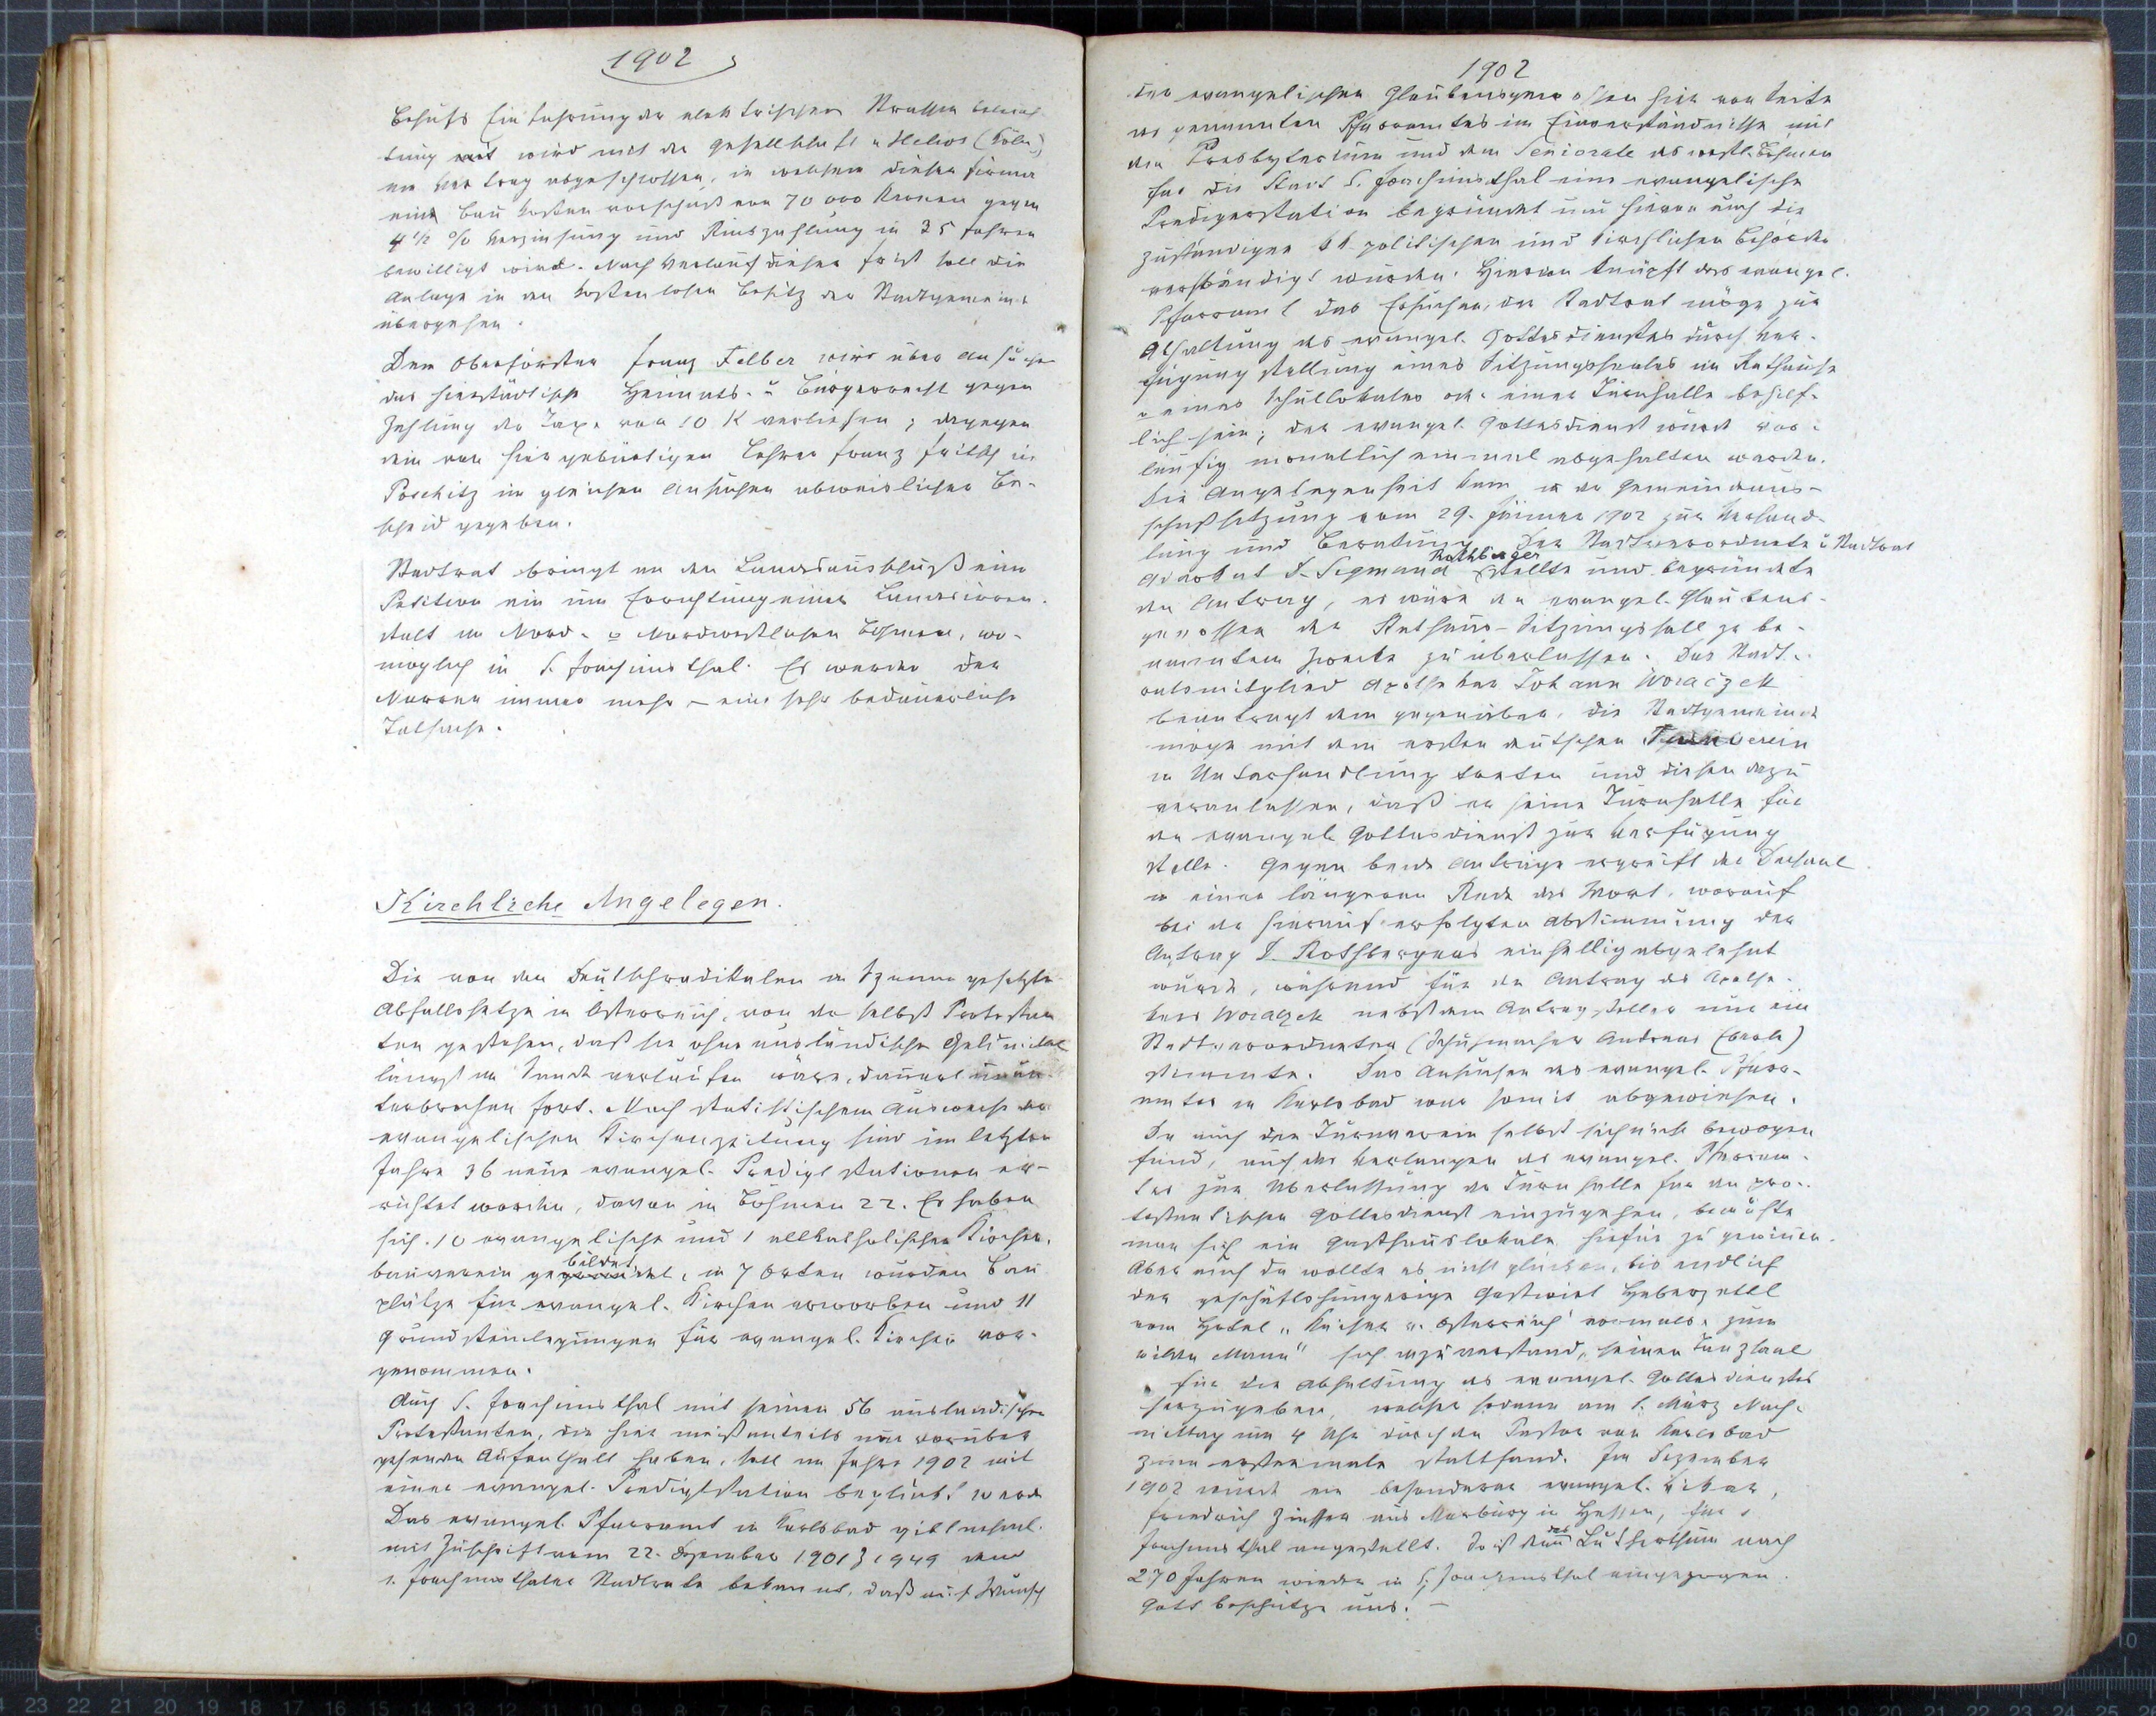 1902
Behufs Einfuhrung der elektrischen Strassen beleuch
tung wird mit der Gesellschaft „Helios (Köln)
ein Vertrag abgeschlossen, in welchem dieser Firma
eine Bau kosten vorschuß von 70 000 Kronen gegen
4 1/2 % Verzinsung und Rückzahlung in 35 Jahren
bewilligt wird. Nach Verlauf dieser Frist soll die
Anlage in den kostenlosen Besitz der Stadtgemeinde
übergehen.
Dem Oberförster Franz Felber wird über Ansuchen
das hierstädtische Heimats- u Bürgerrecht gegen
Zahlung der Taxe von 10 K verliehen; dagegen
dem von hier gebürtigen Lehrer Franz in
Poschitz im gleichen Ansuchen abweislicher Be-
scheid gegeben.
Stadtrat bringt an den Landesausschuß eine
Petition ein um Errichtung einer Landesirren-
stalt im Nord- o Nordwestlichen Böhmen, wo-
möglich in S. Joachimsthal. Es werden der
Narren immer mehr – eine sehr bedauerliche
Tatsache.
Kirchliche Angelegen.
Die von den Deutschradikalen in Szenne gesetzte
Abfallshetze in Österreich, von der selbst Protestan
ten gestehen, daß sie ohne ausländische Geldmittel
längst im Sande verlaufen wäre, dauert unun-
terbrochen fort. Nach statistischem Ausweise der
evangelischen Kirchenzeitung sind im letzten
Jahre 36 neue evangel. Predigt stationen er-
richtet worden, davon in Böhmen 22. Es haben
sich 10 evangelische und 1 altkatholischer Kirchen-
bauverein gebildet, in 7 Orten wurden Bau
plätze für evangel. Kirchen erworben und 11
Grundsteinlegungen für evangel. Kirchen vor-
genommen.
Auch S. Joachimsthal mit seinen 56 ausländischen
Protestanten, die hier meistenteils nur vorüber
gehenden Aufenthalt haben, soll im Jahre 1902 mit
einer evangel. Predigtstation beglückt werde
Das evangel. Pfarramt in Karlsbad gibt nehml.
mit Zuschrift vom 22. Dezember 1901 Z 1949 dem
S. Joachimsthaler Stadtrate bekannt, daß auf Wunsch
1902
der evangelischen Glaubensgenossen hier von Seite
des genannten Pfarramtes im Einverständnisse mit
dem Presbyterium und dem Seniorate des westl. Böhmen
für die Stadt S. Joachimsthal eine evangelische
Predigerstation begründet und hievon auch die
zuständigen kk politischen und kirchlichen Behörden
verständigt wurden. Hieran knüpft das evangel.
Pfarramt das Ersuchen, der Stadtrat möge zur
Abhaltung des evangel. Gottesdienstes durch Ver-
fügung stellung eines Sitzungssaales im Rathause
o eines Schullokales od. einer Turnhalle behilf-
lich sein; der evangel. Gottesdienst würde vor-
läufig monatlich einmal abgehalten werden.
Die Angelegenheit kam in der Gemeindeaus-
schußsitzung vom 29. Jänner 1902 zur Verhand-
lung und Beratung. Der Stadtverordnete u Stadtrat
Advokat D. Sigmund Rothberger stellte und begründete
den Antrag, es wäre den evangel. Glaubens-
genossen der Rathaus-Sitzungssaal zu be-
nanntem Zwecke zu überlassen. Das Stadt-
ratsmitglied Apotheker Johann Woraczek
beantragt dem gegenüber, die Stadtgemeinde
möge mit dem ersten deutschen Turnverein
in Unterhandlung treten und diesen dazu
veranlassen, daß er seine Turnhalle für
den evangel. Gottesdienst zur Verfügung
stelle. Gegen beide Anträge ergreift der Dechant
in einer längeren Rede das Wort, worauf
bei der hierauf erfolgten Abstimmung der
Antrag D. Rothbergers einhellig abgelehnt
wurde, während für den Antrag des Apothe-
kers Woraczek nebst dem Antragsteller nur ein
Stadtverordneter (Schuhmacher Andreas)
stimmte. Das Ansuchen des evangel. Pfarr-
amtes in Karlsbad war somit abgewiesen.
Da auch der Turnverein selbst sich nicht bewogen
fand, auf das Verlangen des evangel. Pfarram-
tes zur Überlassung der Turnhalle für den pro-
testantischen Gottesdienst einzugehen, bemühte
man sich ein Gasthauslokale hiefür zu gewinnen.
Aber auch da wollte es nicht glücken, bis endlich
der geschäftshungerige Gastwirt Haberzettl
vom Hotel „Kaiser v. Österreich vormals zum
wilden Mann" sich dazu verstand, seinen Tanzsaal
für die Abhaltung des evangel. Gottesdienstes
herzugeben, welcher sodann am 1. März Nach-
mittag um 4 Uhr durch den Pastor von Karlsbad
zum erstenmale stattfand. Im Dezember
1902 wurde ein besonderer evangel. Vikar,
Friedrich aus Marburg in Hessen, für S.
Joachimsthal angestellt. So ist denn das Lutherthum nach
270 Jahren wieder in S. Joachimsthal eingezogen.
Gott beschütze uns. –